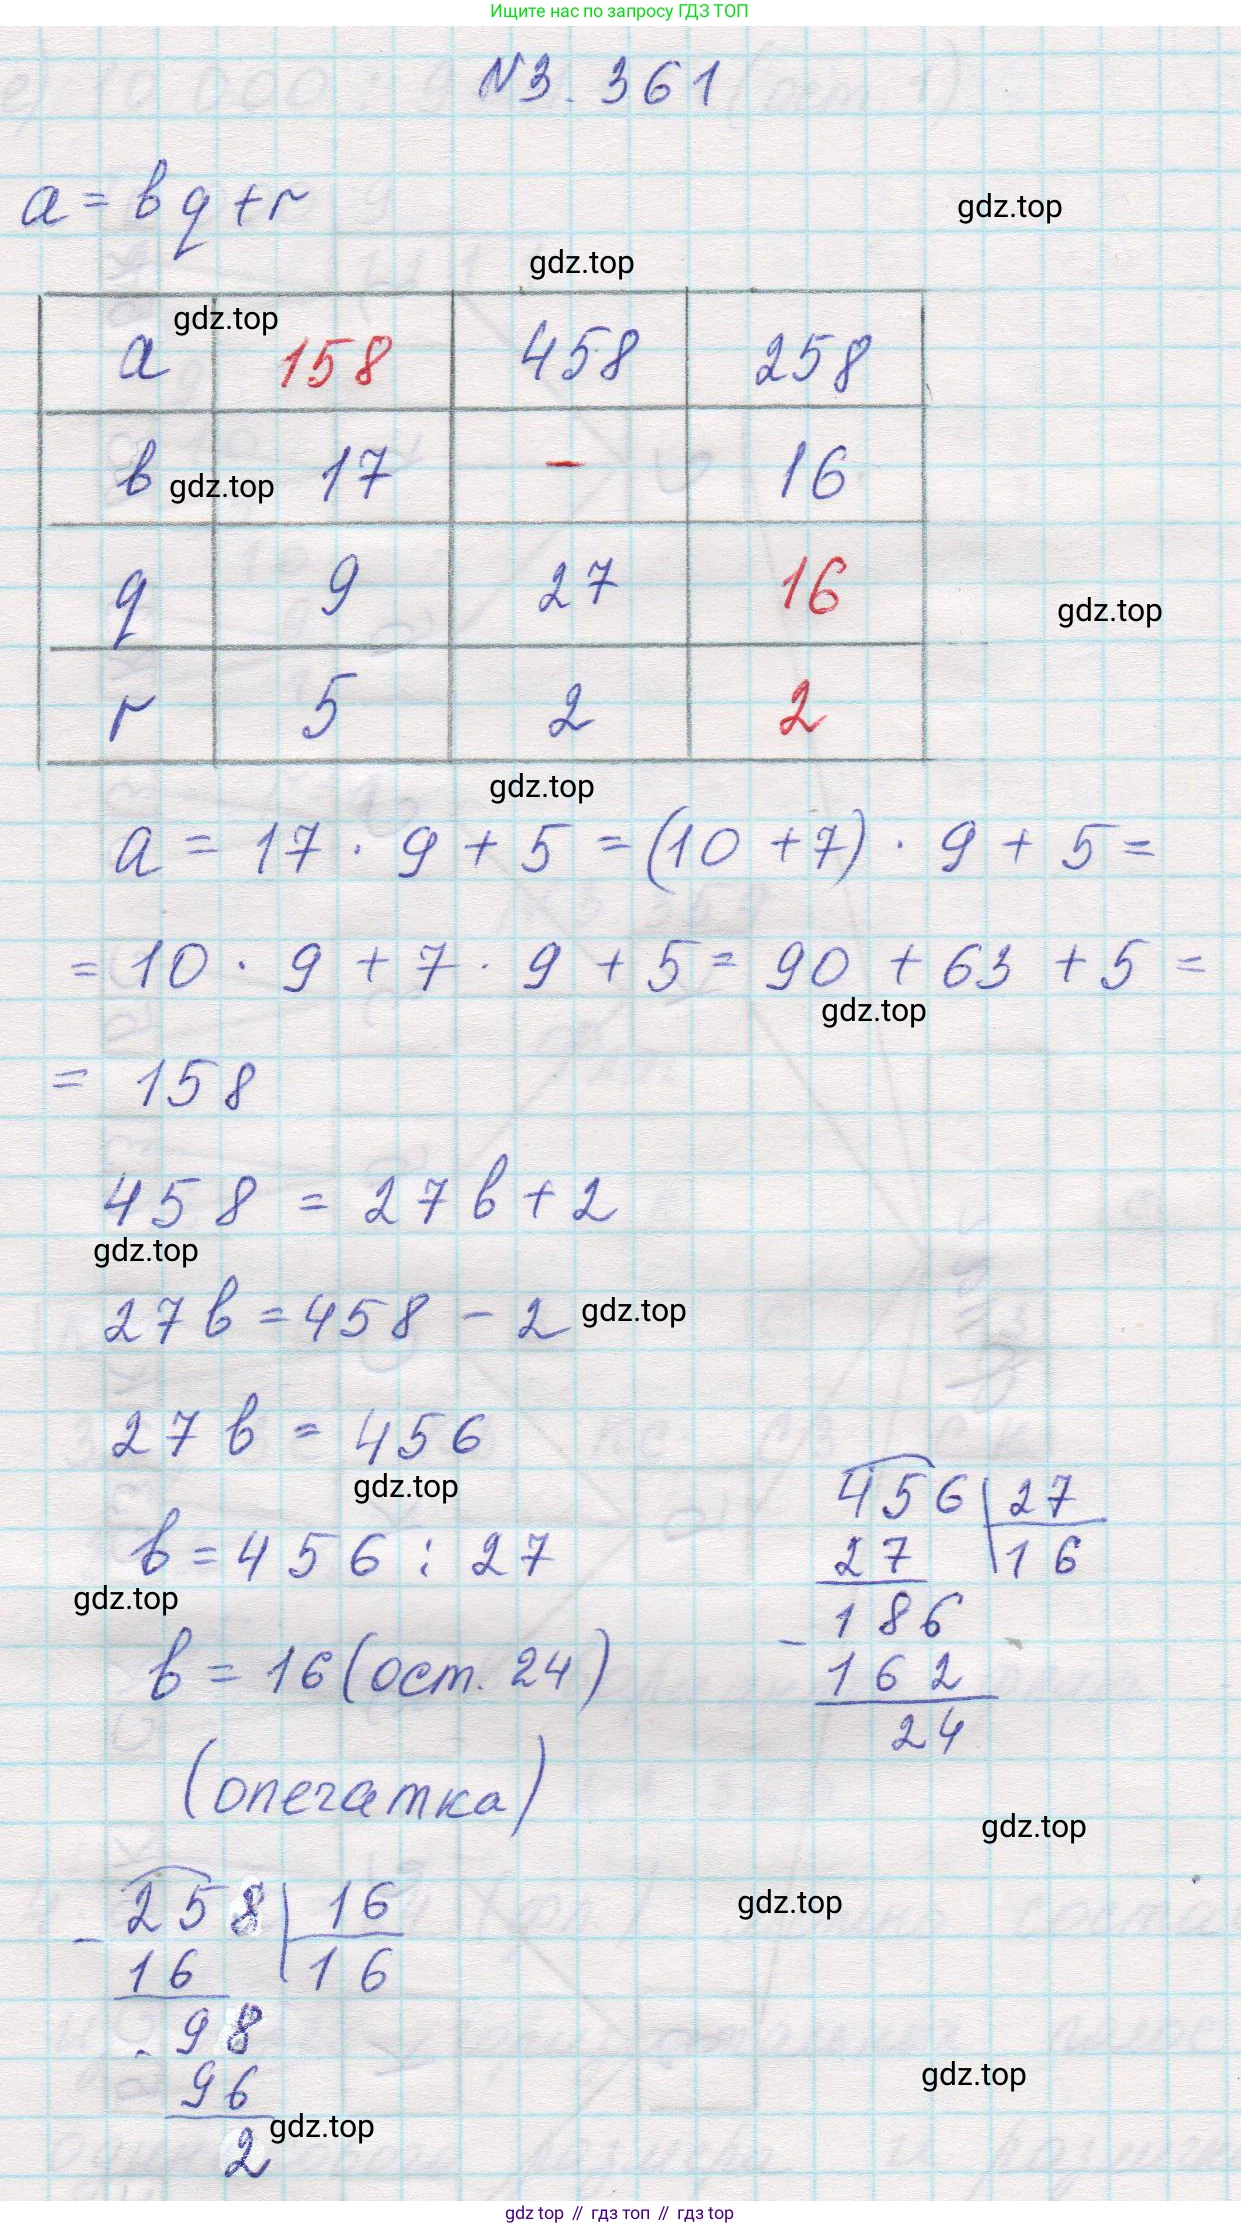 Ищите нас по запросу ГДЗ ТОП
№3.361
a = bq + r
gdz.top
gdz.top
gdz.top
a 158 458 258
b 17 – 16
gdz.top
q 9 27 16
gdz.top
r 5 2 2
gdz.top
a = 17 · 9 + 5 = (10 + 7) · 9 + 5 =
= 10 · 9 + 7 · 9 + 5 = 90 + 63 + 5 =
gdz.top
= 158
458 = 27b + 2
gdz.top
27b = 458 - 2
gdz.top
27b = 456
gdz.top
b = 456 : 27
gdz.top
b = 16 (ост. 24)
(опечатка)
456 27
27 16
186
- 162
24
gdz.top
gdz.top
- 258 16
16 16
- 98
96
2
gdz.top
gdz.top
gdz top // гдз топ // gdz top